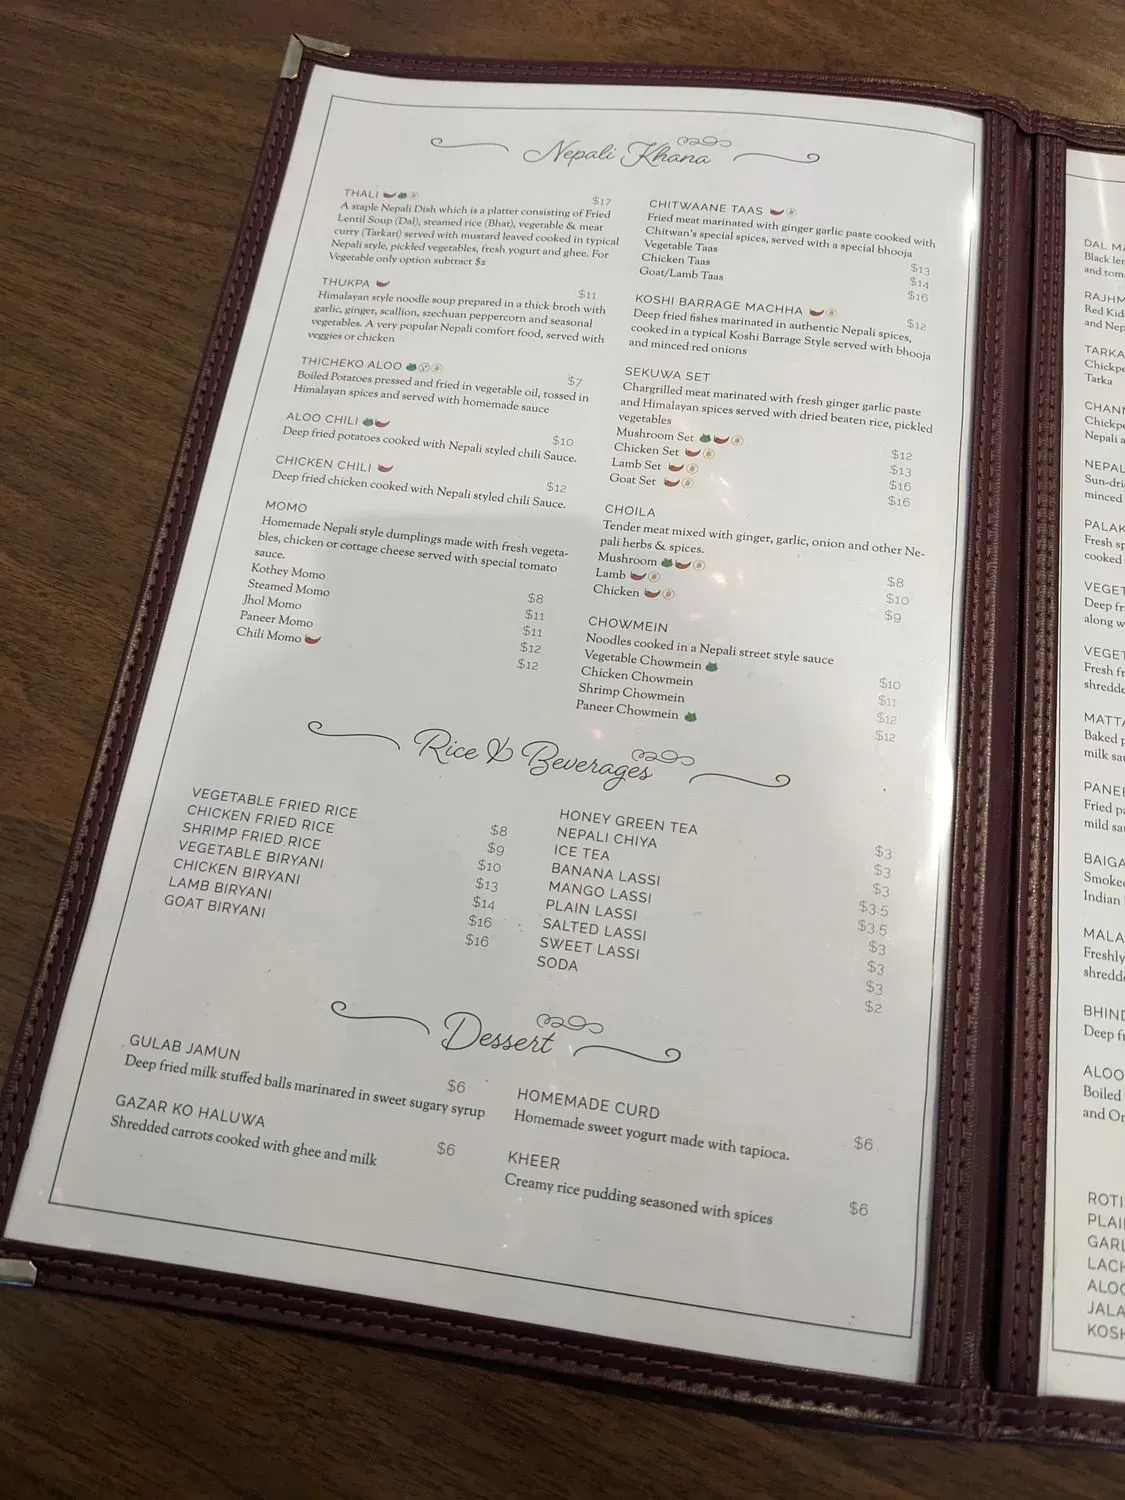 Nepali Khana
THALI $17
A staple Nepali Dish which is a platter consisting of Fried
Lentil Soup (Dal), steamed rice (Bhat), vegetable & meat
curry (Tarkari) served with mustard leaved cooked in typical
Nepali style, pickled vegetables, fresh yogurt and ghee. For
Vegetable only option subtract $2
THUKPA $11
Himalayan style noodle soup prepared in a thick broth with
garlic, ginger, scallion, szechuan peppercorn and seasonal
vegetables. A very popular Nepali comfort food, served with
veggies or chicken
THICHEKO ALOO $7
Boiled Potatoes pressed and fried in vegetable oil, tossed in
Himalayan spices and served with homemade sauce
ALOO CHILI $10
Deep fried potatoes cooked with Nepali styled chili Sauce.
CHICKEN CHILI $12
Deep fried chicken cooked with Nepali styled chili Sauce.
MOMO
Homemade Nepali style dumplings made with fresh vegeta-
bles, chicken or cottage cheese served with special tomato
sauce.
Kothey Momo $8
Steamed Momo $11
Jhol Momo $11
Paneer Momo $12
Chili Momo $12
CHITWAANE TAAS
Fried meat marinated with ginger garlic paste cooked with
Chitwan's special spices, served with a special bhooja
Vegetable Taas $13
Chicken Taas $14
Goat/Lamb Taas $16
KOSHI BARRAGE MACHHA $12
Deep fried fishes marinated in authentic Nepali spices,
cooked in a typical Koshi Barrage Style served with bhooja
and minced red onions
SEKUWA SET
Chargrilled meat marinated with fresh ginger garlic paste
and Himalayan spices served with dried beaten rice, pickled
vegetables
Mushroom Set $12
Chicken Set $13
Lamb Set $16
Goat Set $16
CHOILA
Tender meat mixed with ginger, garlic, onion and other Ne-
pali herbs & spices.
Mushroom $8
Lamb $10
Chicken $9
CHOWMEIN
Noodles cooked in a Nepali street style sauce
Vegetable Chowmein $10
Chicken Chowmein $11
Shrimp Chowmein $12
Paneer Chowmein $12
Rice & Beverages
VEGETABLE FRIED RICE $8
CHICKEN FRIED RICE $9
SHRIMP FRIED RICE $10
VEGETABLE BIRYANI $13
CHICKEN BIRYANI $14
LAMB BIRYANI $16
GOAT BIRYANI $16
HONEY GREEN TEA $3
NEPALI CHIYA $3
ICE TEA $3
BANANA LASSI $3.5
MANGO LASSI $3.5
PLAIN LASSI $3
SALTED LASSI $3
SWEET LASSI $3
SODA $2
Dessert
GULAB JAMUN $6
Deep fried milk stuffed balls marinared in sweet sugary syrup
GAZAR KO HALUWA $6
Shredded carrots cooked with ghee and milk
HOMEMADE CURD $6
Homemade sweet yogurt made with tapioca.
KHEER $6
Creamy rice pudding seasoned with spices
DAL
Black
and
Red
and
Tarka
Nepali
minced
Fresh
cooked
Deep
along
Fresh
Baked
milk
Fried
mild
Indian
Freshly
Deep
ALOO
Boiled
and
ROTI